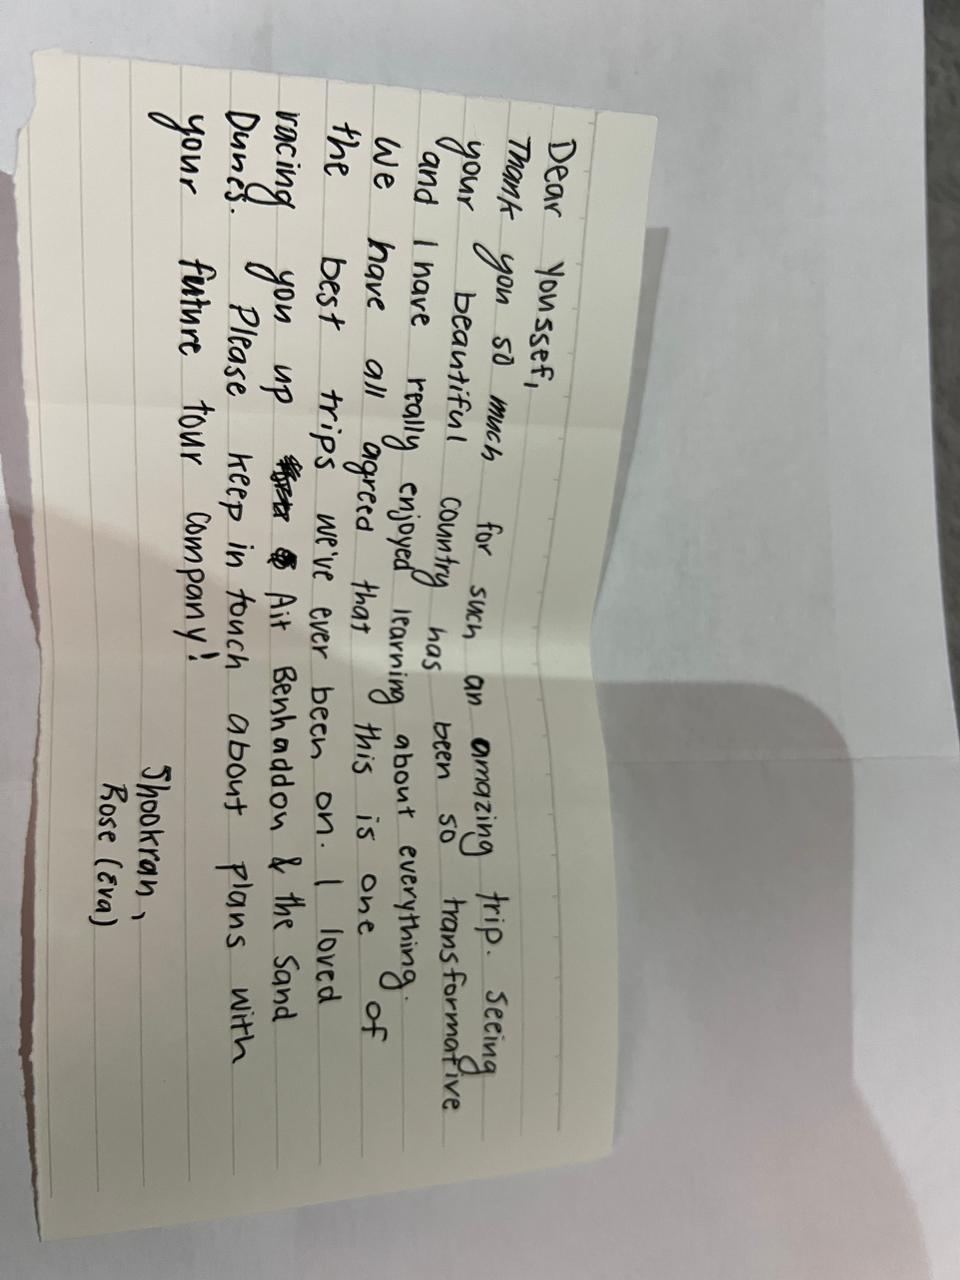 Dear Youssef,
Thank you so much for such an amazing trip. Seeing
your beautiful country has been so transformative
and I have really enjoyed learning about everything.
We have all agreed that this is one of
the best trips we've ever been on. I loved
racing you up Ait Benhaddou & the Sand
Dunes. Please keep in touch about plans with
your future tour company!
Shookran,
Rose (Eva)